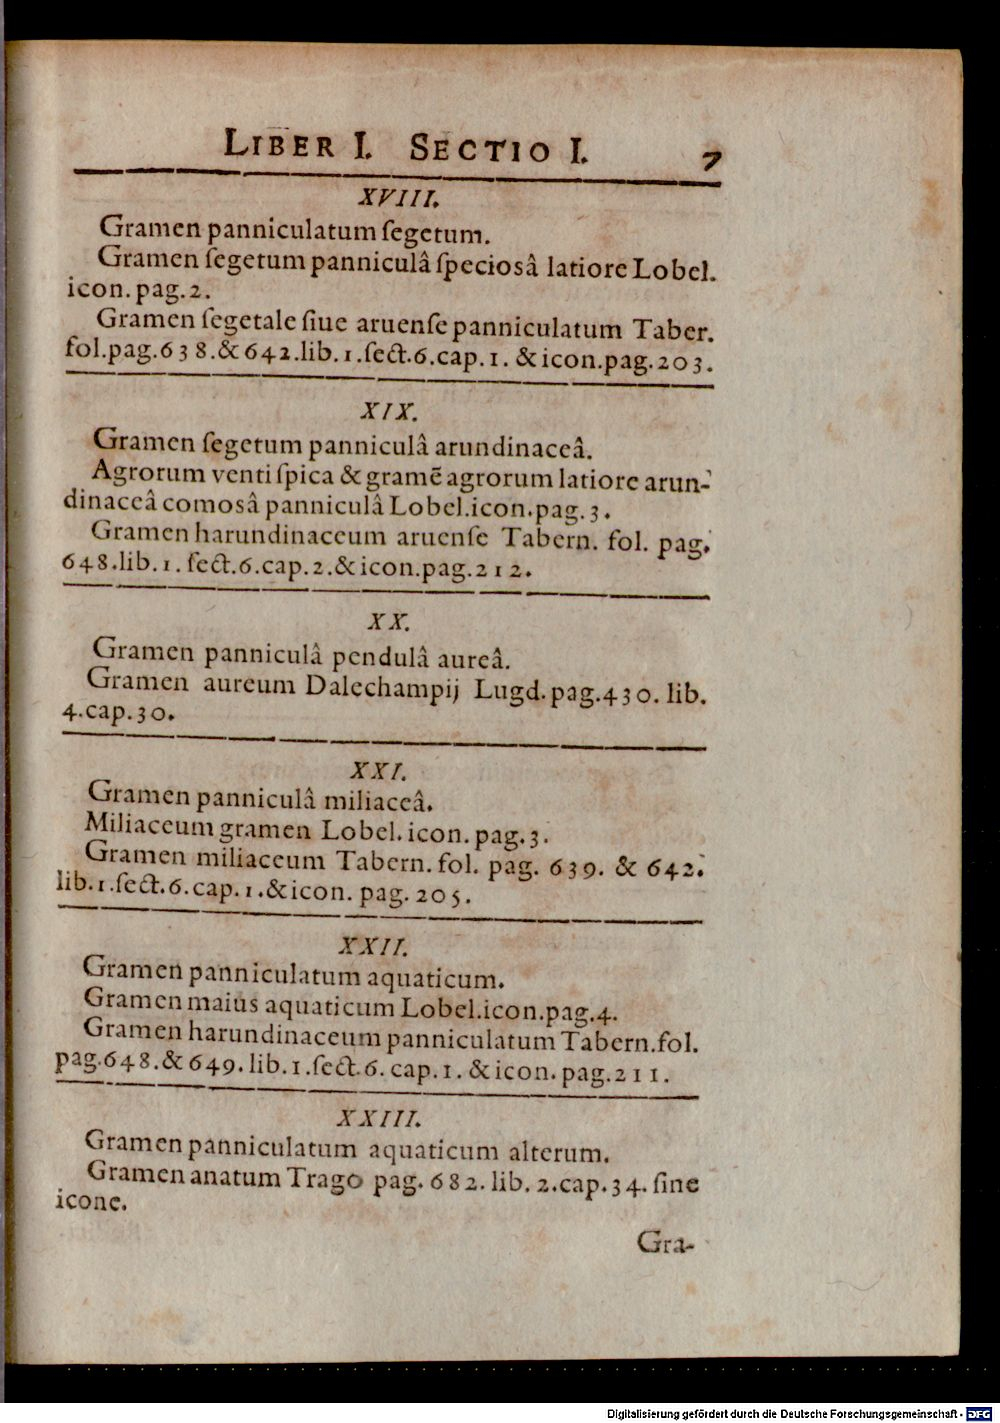 LIBER I. SECTIO I. 7
XVIII.
Gramen panniculatum ſegetum.
Gramen ſegetum panniculâ ſpeciosâ latiore Lobel.
icon. pag. 2.
Gramen ſegetale ſiue aruenſe panniculatum Taber.
fol. pag. 638. & 642. lib. 1. ſect. 6. cap. 1. & icon. pag. 203.
XIX.
Gramen ſegetum panniculâ arundinaceâ.
Agrorum venti ſpica & gramẽ agrorum latiore arun-
dinaceâ comosâ panniculâ Lobel. icon. pag. 3.
Gramen harundinaceum aruenſe Tabern. fol. pag.
648. lib. 1. ſect. 6. cap. 2. & icon. pag. 212.
XX.
Gramen panniculâ pendulâ aureâ.
Gramen aureum Dalechampij Lugd. pag. 430. lib.
4. cap. 30.
XXI.
Gramen panniculâ miliaceâ.
Miliaceum gramen Lobel. icon. pag. 3.
Gramen miliaceum Tabern. fol. pag. 639. & 642.
lib. 1. ſect. 6. cap. 1. & icon. pag. 205.
XXII.
Gramen panniculatum aquaticum.
Gramen maius aquaticum Lobel. icon. pag. 4.
Gramen harundinaceum panniculatum Tabern. fol.
pag. 648. & 649. lib. 1. ſect. 6. cap. 1. & icon. pag. 211.
XXIII.
Gramen panniculatum aquaticum alterum.
Gramen anatum Trago pag. 682. lib. 2. cap. 34. ſine
icone.
Gra-
Digitalisierung gefördert durch die Deutsche Forschungsgemeinschaft - DFG